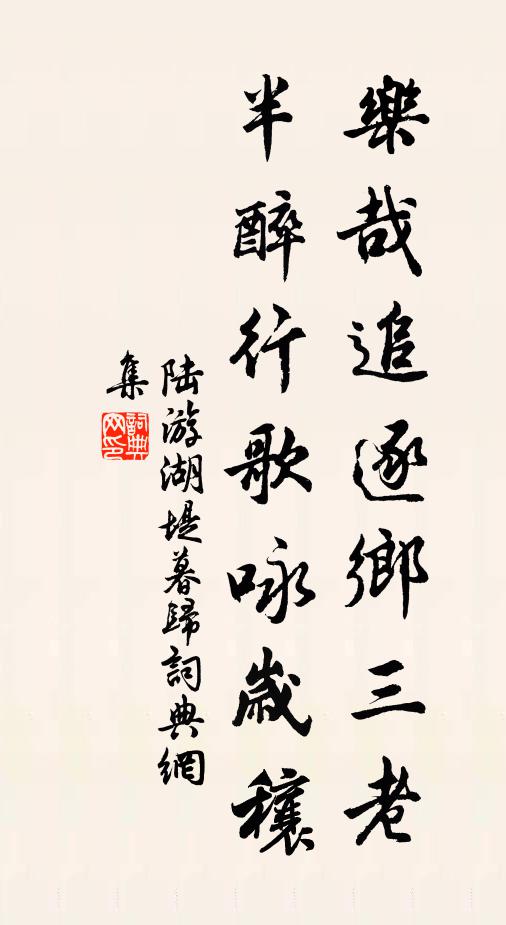 樂哉追逐鄉三老
半醉行歌咏歲穰
陸游湖堤暮歸詞典網
集
詞典
网印